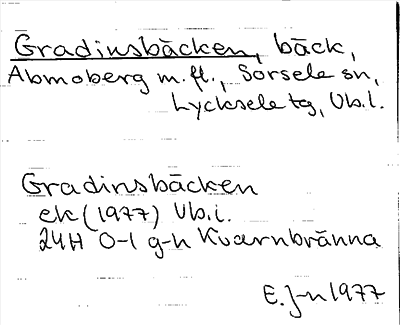 Gradinsbäcken, bäck,
Abmoberg m.fl., Sorsele sn,
Lycksele tg, Vb.l.
Gradinsbäcken
ek (1977) Vb.l.
24H 0-1 g-h Kvarnbränna
E. J-n 1977